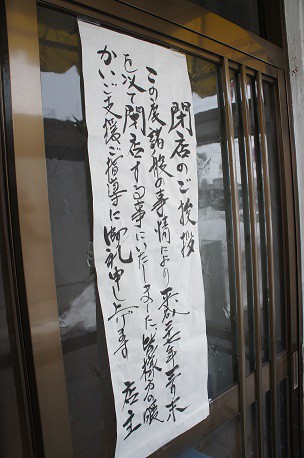 閉店のご挨拶
この度諸般の事情により平成
を以て閉店する事にいたりました皆様方の暖
かいご支援ご指導に御礼申し上げます
店主